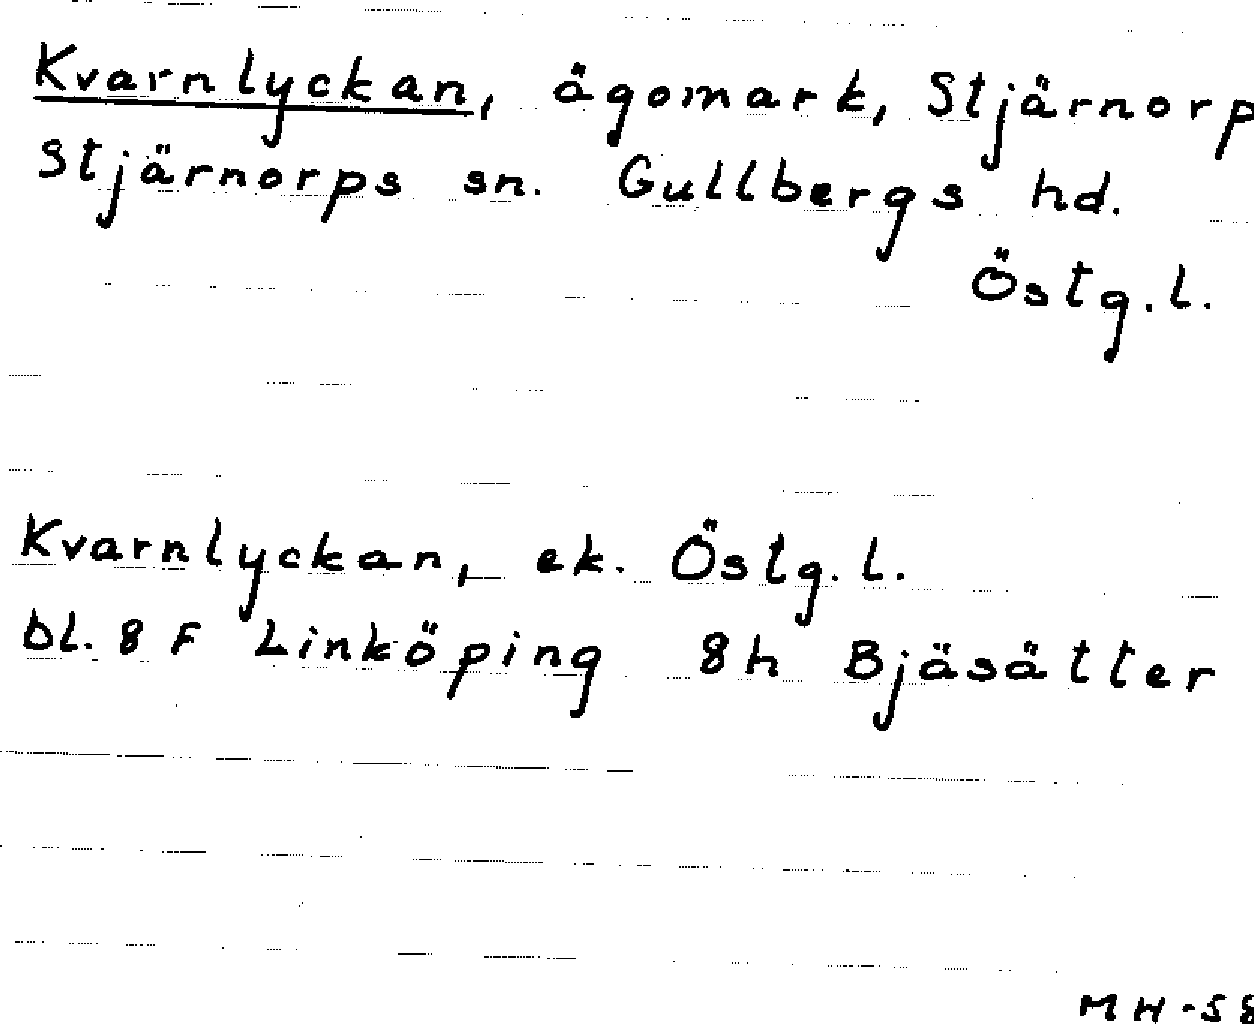 Kvarnlyckan, ägomark, Stjärnorp
Stjärnorps sn. Gullbergs hd.
Östg.l.
Kvarnlyckan, ek. Östg.l.
bl. 8 F Linköping 8h Bjäsätter
MH-58